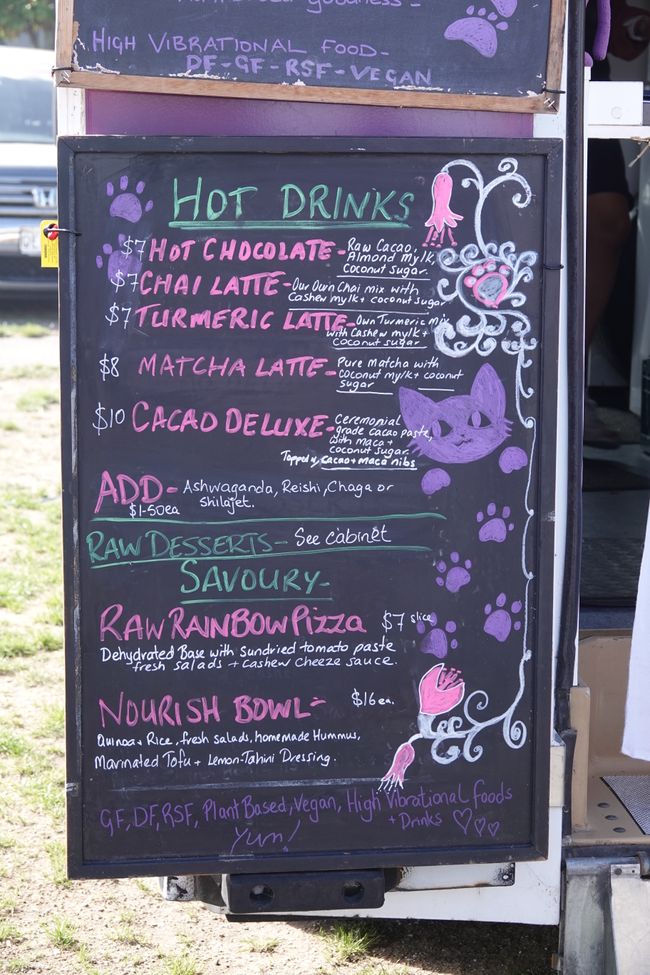 goodness-
High Vibrational Food-
DF-GF-RSF-Vegan
Hot Drinks
$7 Hot Chocolate- Raw Cacao,
Almond mylk,
Coconut sugar.
$7 Chai Latte- Our Own Chai mix with
Cashew mylk + coconut sugar
$7 Turmeric Latte- Own Turmeric mix
with Cashew mylk +
Coconut sugar
$8 Matcha Latte- Pure Matcha with
Coconut mylk + coconut
sugar
$10 Cacao Deluxe- Ceremonial
grade Cacao paste,
with maca +
coconut sugar.
Topped w/ cacao + maca nibs
Add- Ashwaganda, Reishi, Chaga or
$1-50ea Shilajet.
Raw Desserts- See cabinet
Savoury-
Raw Rainbow Pizza $7 slice
Dehydrated Base with sundried tomato paste
fresh salads + Cashew Cheeze sauce.
Nourish Bowl- $16 ea.
Quinoa + Rice, fresh salads, homemade Hummus,
Marinated Tofu + Lemon-Tahini Dressing.
GF, DF, RSF, Plant Based, Vegan, High Vibrational Foods
+ Drinks
Yum!